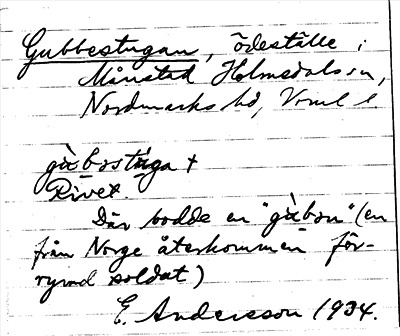 Gubbestugan, ödeställe i
Månstad Holmsdals sn,
Nordmarks hd, Vrml l.
gùbəstúga +
Rivet.
Där bodde en "gùbən" (en
från Norge återkommen för-
rymd soldat)
E. Andersson 1934.